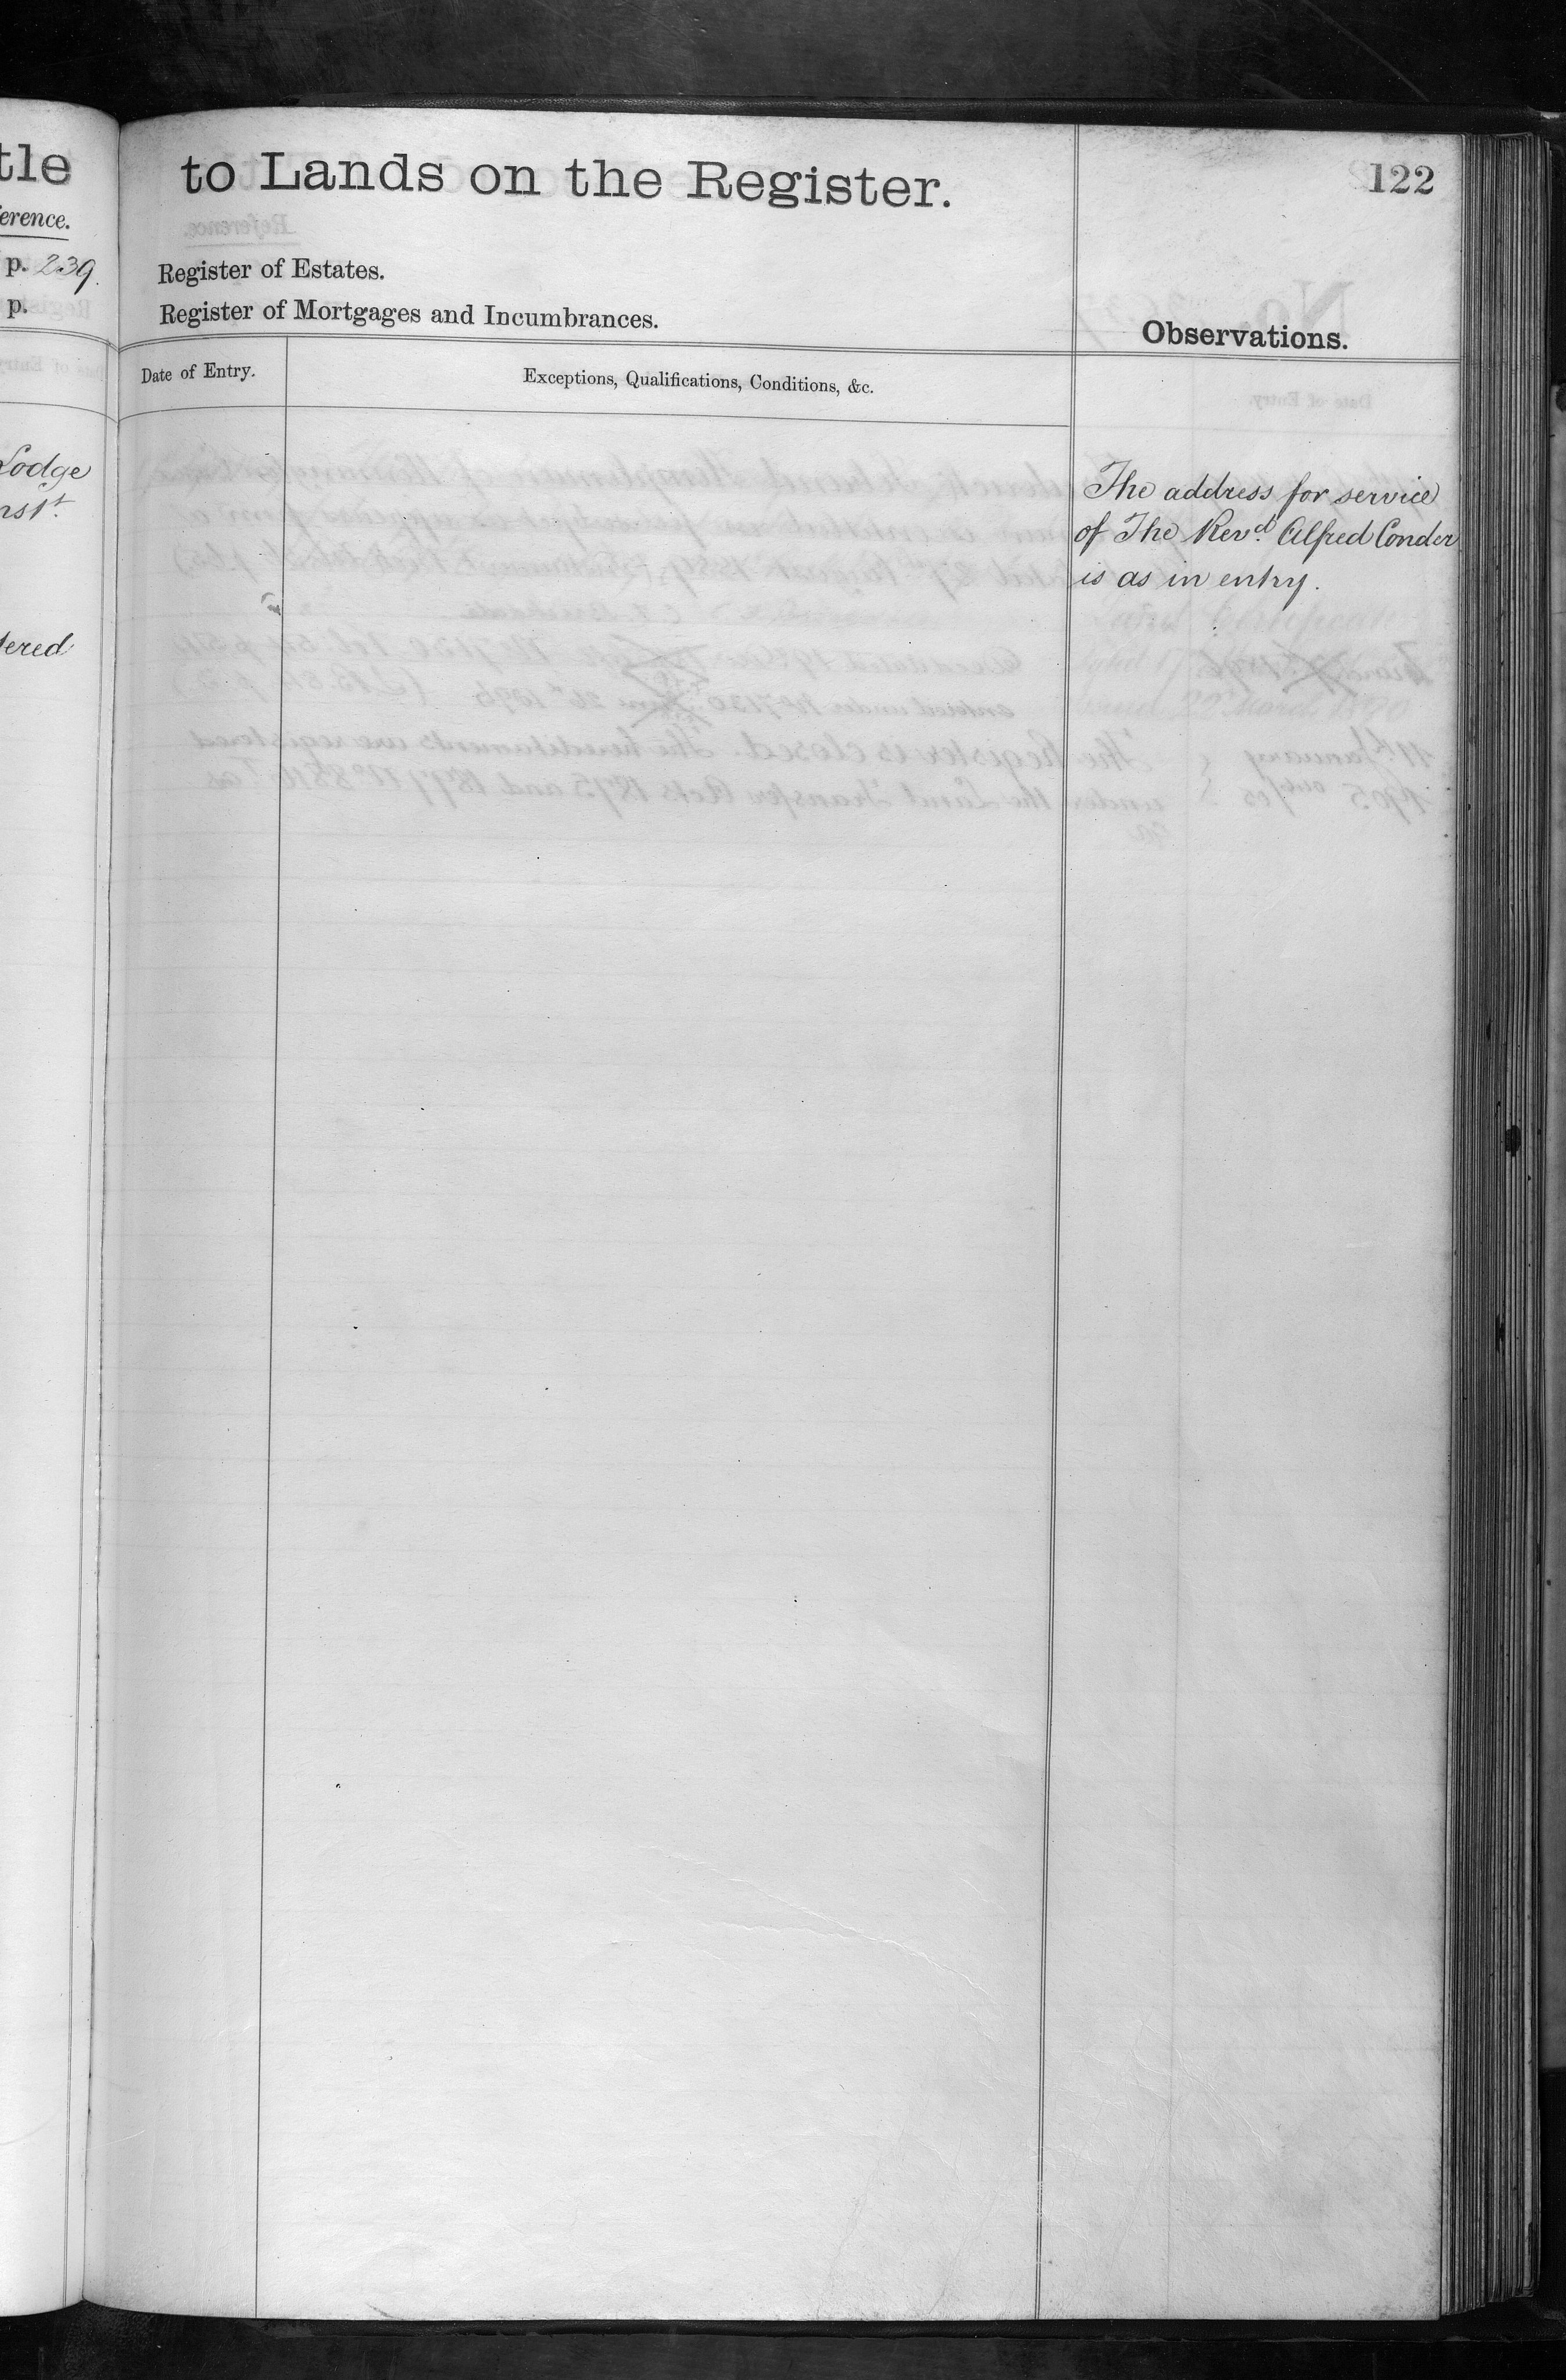 tle
erence.
p. 239.
p.
Lodge
rst.
tered
to Lands on the Register.
122
Register of Estates.
Register of Mortgages and Incumbrances.
Observations.
Date of Entry.
Exceptions, Qualifications, Conditions, &c.
The address for service
of The Revd. Alfred Conder
is as in entry.